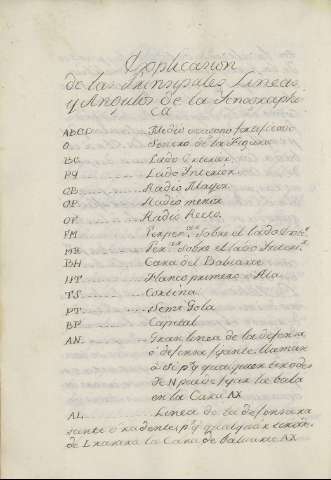 Explicacion
de las Principales Lineas
y Angulos de la Iconographi
ca
ABCD ........ Medio exsagono fortificado
O ........ Sentro de la Figura
BC ........ Lado Exterior
PY ........ Lado Interior
OB ........ Radio Mayor
OP ........ Radio menor
OF ........ Radio Recto
FM ........ Perpen.ar Sobre el lado
MR ........ Per.ar Sobre el lado Interi.r
BH ........ Cara del Baluarte
HT ........ Flanco primero o Ala
TS ........ Cortina
PT ........ Semi Gola
BP ........ Capital
AN ........ Gran linea de la defensa
ó defensa fijante llamase
a si p.q
de N para fijar la bala
en la Cara AX
AL ........ Linea de la defensa ra
sante o p.q
de L rasara la Cara de Baluarte AX